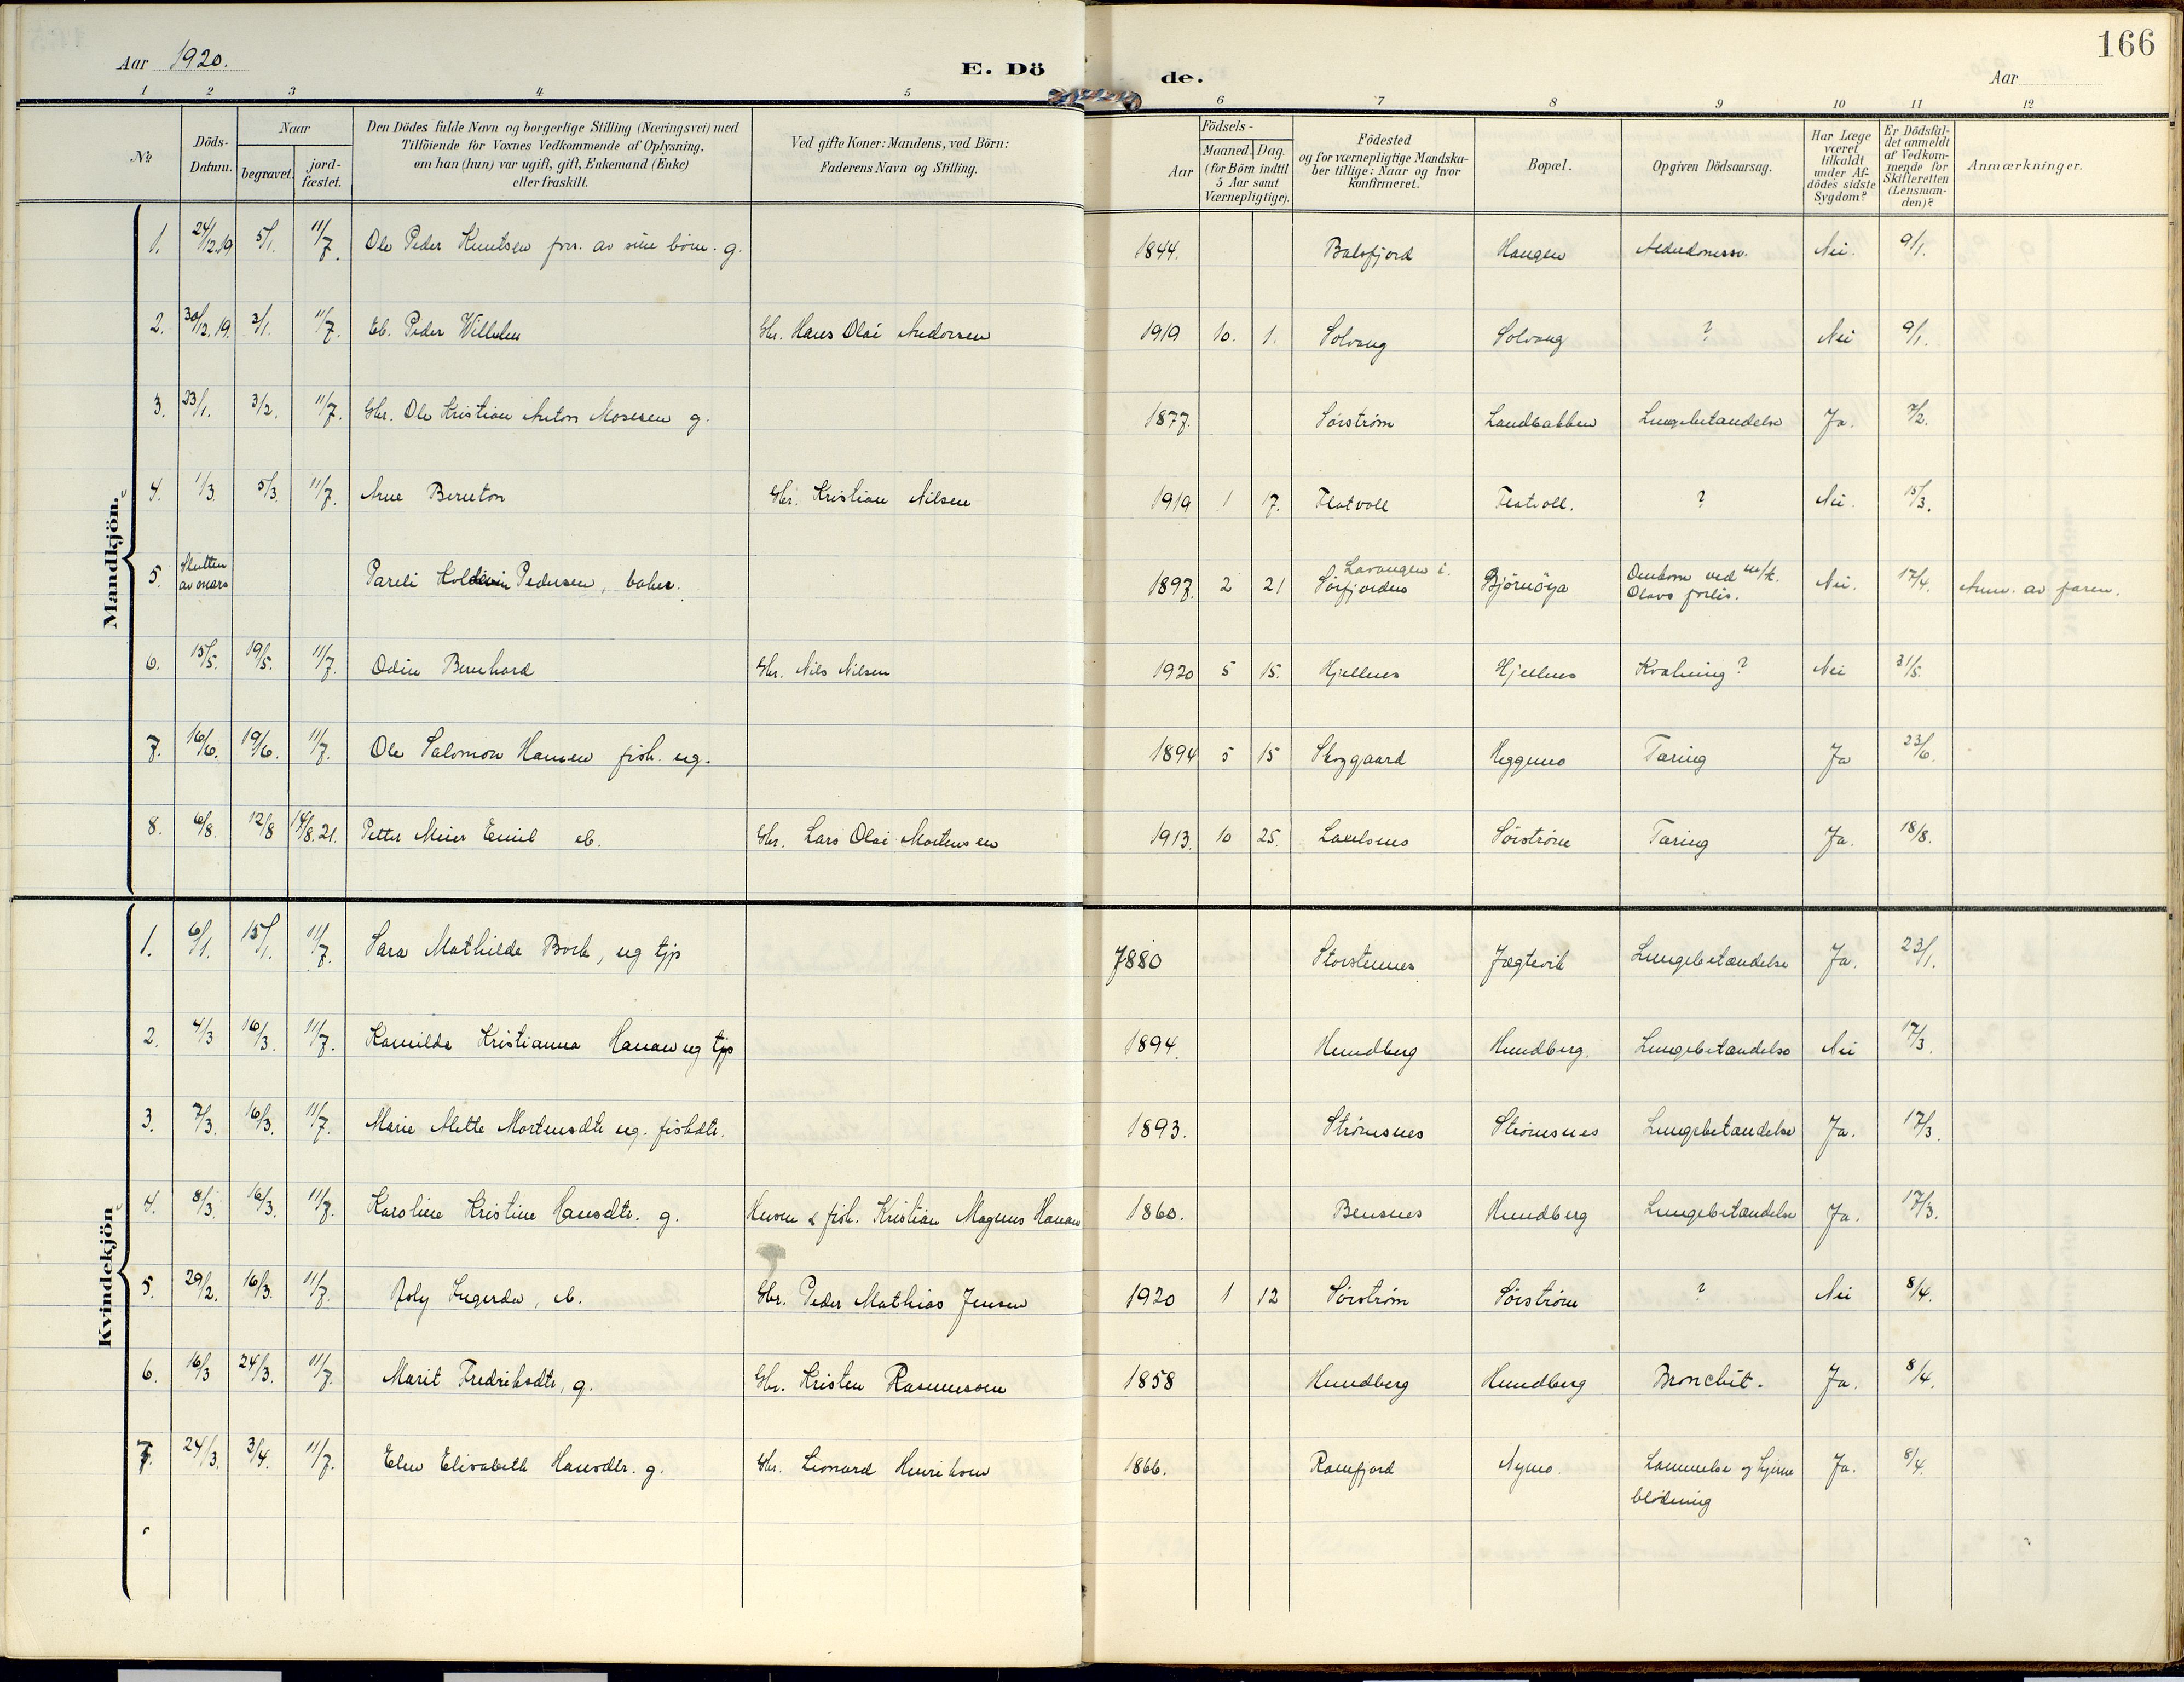 166
Aar 1920.
E. Dö de.
Aar
1 2 3 4 5 6 7 8 9 10 11 12
No
Döds-Datum.
Naar
begravet.
jord-fæstet.
Den Dödes fulde Navn og borgerlige Stilling (Næringsvei) med
Tilföiende for Voxnes Vedkommende af Oplysning,
om han (hun) var ugift, gift, Enkemand (Enke)
eller fraskilt.
Ved gifte Koner: Mandens, ved Börn:
Faderens Navn og Stilling.
Födsels-
Aar
Maaned. Dag.
(for Börn indtil
5 Aar samt
Værnepligtige).
Födested
og for værnepligtige Mandska-
ber tillige: Naar og hvor
konfirmeret.
Bopæl.
Opgiven Dödsaarsag.
Har Læge
været
tilkaldt
under Af-
dödes sidste
Sygdom?
Er Dödsfal-
det anmeldt
af Vedkom-
mende for
Skifteretten
(Lensman-
den)?
Anmærkninger.
Mandkjön.
1. 24/12.19 5/1. 11/7. Ole Peder Knutsen fors. av sine börn. g. 1844. Balsfjord Haugen Nei. 9/1.
2. 30/12.19. 3/1. 11/7. Eb. Peder Wilhelm Gbr. Hans Olai Andorsen 1919 10. 1. Solvang Solvang ? Nei 9/1.
3. 23/1. 3/2. 11/7. Gbr. Ole Kristian Anton Mosesen g. 1877. Sörström Landbakken Lungebetændelse Ja. 7/2.
4. 1/3. 5/3. 11/7. Arne Bernton Gbr. Kristian Nilsen 1919 1 17. Flatvoll Flatvoll. ? Nei. 15/3.
5. Slutten av mars Pareli Pedersen, baker. 1897. 2 21 Lavangen i. Sörfjorden Björnöya Omkom ved m/k. Olavs forlis. Nei. 17/4. Anm. av faren.
6. 15/5. 19/5. 11/7. Odin Bernhard Gbr. Nils Nilsen 1920 5 15. Hjellnes Hjellnes Kvælning? Nei 31/5.
7. 16/6. 19/6. 11/7. Ole Salomon Hansen fisk. ug. 1894 5 15 Skoggaard Heggmo Tæring Ja 23/6.
8. 6/8. 12/8 14/8.21. Petter Meier Emil eb. Gbr. Lars Olai Mortensen 1913. 10 25. Lakselvnes Sörström Tæring Ja. 18/8.
Kvindekjön
1. 6/1. 15/1. 11/7. Sara Mathilde Bork, ug tjp 1880 Storstennes Jægtevik Lungebetændelse Ja. 23/1.
2. 4/3 16/3. 11/7. Kamilda Kristianna Hansen ug tjp 1894. Hundberg Hundberg. Lungebetændelse Nei 17/3.
3. 7/3. 16/3. 11/7. Marie Mette Mortensdtr ug. fiskdtr. 1893. Strömsnes Strömsnes Lungebetændelse Ja. 17/3.
4. 8/3. 16/3. 11/7. Karoline Kristine Hansdtr. g. Husm & fisk. Kristian Magnus Hansen 1860. Bensnes Hundberg Lungebetændelse Ja. 17/3.
5. 29/2. 16/3. 11/7. Ingerda, eb. Gbr. Peder Mathias Jensen 1920 1 12 Sörström Sörström ? Nei 8/4.
6. 16/3 24/3. 11/7. Marit Fredriksdtr, g. Gbr. Kristen Rasmussen 1858 Hundberg Hundberg Bronchit. Ja. 8/4.
7. 24/3. 3/4. 11/7. Elen Elisabeth Hansdtr. g. Gbr. Leonard Henriksen 1866. Ramfjord Nymo. Lammelse og hjerne Ja. 8/4.
blödning